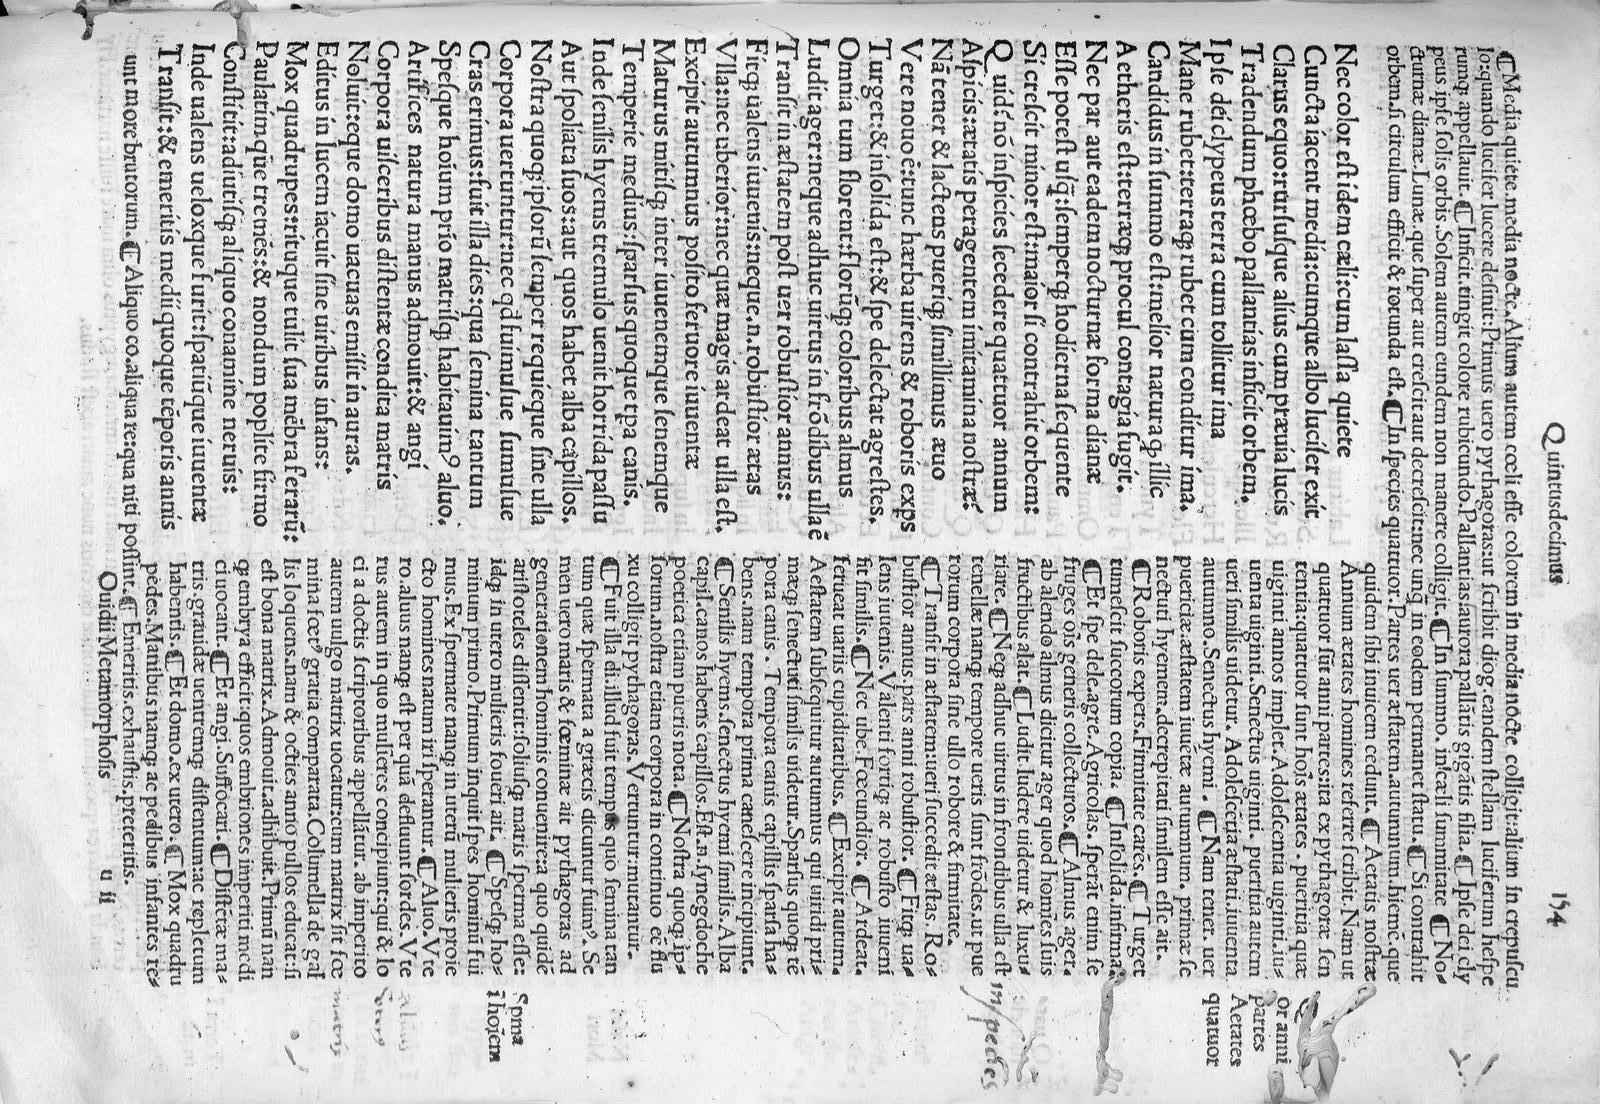 Quintusdecimus 154
⁋Media quiéte.media nocte.Alium autem cœli esse colorem in media nocte colligit:alium in crepuscu
lo:quando lucifer lucere desinit:Primus uero pythagoras:ut scribit diog.eandem stellam luciferum hespe
rumq; appellauit.⁋Inficit.tingit colore rubicundo.Pallantias:aurora pallātis gigātis filia.⁋Ipse dei cly
peus ipse solis orbis.Solem autem eundem non manere colligit.⁋In summo. in cæli summitate ⁋No-
cturnæ dianæ.Lunæ.que super aut crescit aut decrescit:nec unq̄ in eodem permanet statu.⁋Si contrahit
orbem.si circulum efficit & rotunda est.⁋In species quattuor.Partes uer æstatem.autumnum.hiemē.que
Nec color est idem cæli:cum lassa quiete
Cuncta iacent media:cumque albo lucifer exit
Clarus equo:rursusque alius cum præuia lucis
Tradendum phœbo pallantias inficit orbem.
Ipse dei clypeus terra cum tollitur ima
Mane rubet:terraq; rubet cum conditur ima.
Candidus in summo est:melior natura q; illic
Aetheris est:terræq; procul contagia fugit.
Nec par aut eadem nocturnæ forma dianæ
Esse potest usq̄:semperq; hodierna sequente
Si crescit minor est:maior si contrahit orbem:
Quid? nō inspicies secedere quattuor annum
Aspicis:ætatis peragentem imitamina nostræ?
Nā tener & lactens pueriq; simillimus æuo
Vere nouo ē:tunc hærba uirens & roboris exps
Turget:& insolida est:& spe delectat agrestes.
Omnia tum florent:florūq; coloribus almus
Ludit ager:neque adhuc uirtus in frōdibus ulla ē
Transit in æstatem post uer robustior annus:
Fitq; ualens iuuenis:neque.n.robustior ætas
Vlla:nec uberior:nec quæ magis ardeat ulla est.
Excipit autumnus posito feruore iuuentæ
Maturus mitisq; inter iuuenemque senemque
Temperie medius:sparsus quoque tpa canis.
Inde senilis hyems tremulo uenit horrida passu
Aut spoliata suos:aut quos habet alba capillos.
Nostra quoq; ipsorū semper requieque sine ulla
Corpora uertuntur:nec qd fuimusue sumusue
Cras erimus:fuit illa dies:qua semina tantum
Spesque hoium prio matrisq; habitauimꝰ aluo.
Artifices natura manus admouit:& angi
Corpora uisceribus distentæ condita matris
Noluit:eque domo uacuas emisit in auras.
Editus in lucem iacuit sine uiribus infans:
Mox quadrupes:rituque tulit sua mēbra ferarū:
Paulatim.qūe tremēs:& nondum poplite firmo
Constitit:adiutisq; aliquo conamine neruis:
Inde ualens ueloxque furit:spatiūque iuuentæ
Transit:& emeritis medii quoque tēporis annis
quidem sibi inuicem cedunt.⁋Aetatis nostræ
Annum ætates homines referre scribit.Nam ut
quattuor sūt anni partes:ita ex pythagoræ sen
tentia:quattuor sunt hois ætates. pueritia quæ
uiginti annos implet.Adolescentia uiginti.iu-
uenta uiginti.Senectus uiginti. pueritia autem
ueri similis uidetur.Adolescētia æstati.iuuenta
autumno.Senectus hyemi.⁋Nam tener. uer
puericiæ.æstatem iuuētæ autumnum. primæ se
nectuti hyemem.decrepitati similem esse ait.
⁋Roboris expers.Firmitate carēs.⁋Turget
tumescit succorum copia.⁋Insolida.infirma.
⁋Et spe dele.agre.Agricolas.sperāt enim se
fruges oīs generis collecturos.⁋Almus ager.
ab alendo almus dicitur ager quod homīes suis
fructibus alat.⁋Ludit.ludere uidetur & luxu
riare.⁋Neq; adhuc uirtus in frondibus ulla est
tenellæ nanq; tempore ueris sunt frōdes.ut pue
rorum corpora sine ullo robore & firmitate.
⁋Transit in æstatem:ueri succedit æstas. Ro-
bustior annus.pars anni robustior.⁋Fitq; ua-
lens iuuenis.Valenti fortiq; ac robusto iuueni
fit similis.⁋Nec ube.Fœcundior.⁋Ardeat.
ferueat uariis cupiditatibus.⁋Excipit autum.
Aestatem subsequitur autumnus qui uiridi pri-
mæq; senectuti similis uidetur.Sparsus quoq; tē
pora canis. Tempora canis capillis sparsa ha-
bens.nam tempora prima canescere incipiunt.
⁋Senilis hyems.senectus hyemi similis.Alba
capil.canos habens capillos.Est.n.synegdoche
poetica etiam pueris nota ⁋Nostra quoq; ip-
sorum.nostra etiam corpora in continuo eē flu
xu colligit pythagoras.Vertuntur:mutantur.
⁋Fuit illa di.illud fuit tempus quo semina tan
tum quæ spermata a græcis dicuntur fuimꝰ. Se
men uero maris & fœminæ ait pythagoras ad
generationem hominis conuenire:a quo quidē
aristoteles dissentit:soliusq; maris sperma esse:
idq; in utero mulieris foueri ait.⁋Spesq; ho-
minum primo.Primum inquit spes hominū fui
mus.Ex spermate nanq; in uterū mulieris proie
cto homines natum iri sperantur.⁋Aluo.Vte
ro.aluus nanq; est per quā defluunt sordes.Vte
rus autem in quo mulieres concipiunt:qui & lo
ci a doctis scriptoribus appellātur. ab imperito
autem uulgo matrix uocatur:cum matrix sit fœ
mina fœtꝰ gratia comparata.Columella de gal
lis loquens.nam & octies anno pullos educat:si
est bona matrix.Admouit.adhibuit.Primū nan
q; embrya efficit:quos embriones imperiti medi
ci uocant.⁋Et angi.Suffocari.⁋Distētæ ma-
tris grauidæ uentremq; distentum:ac repletum
habentis.⁋Et domo.ex utero.⁋Mox quadru
pedes.Manibus namq; ac pedibus infantes re-
unt more brutorum.⁋Aliquo co.aliqua re:qua niti possint.⁋Emeritis.exhaustis.preteritis.
Ouidii Metamorphosis u ii
quatuor
Aetates
partes
or anni
in species
Spma
ī hoiem
matrix